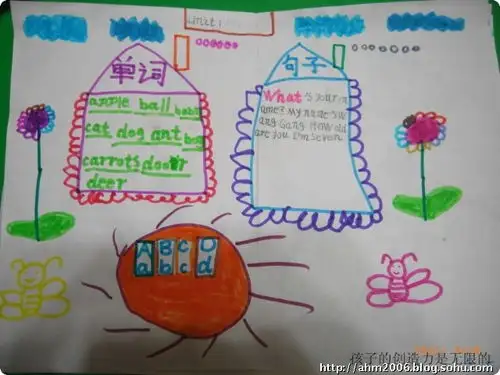 Unit1
单词
句子
apple ball
cat dog ant
carrots door
deer
What's your n
ame? My name's w
ang Gang. How old
are you I'm seven.
A B C D
a b c d
孩子的创造力是无限的
http://ahm2006.blog.sohu.com